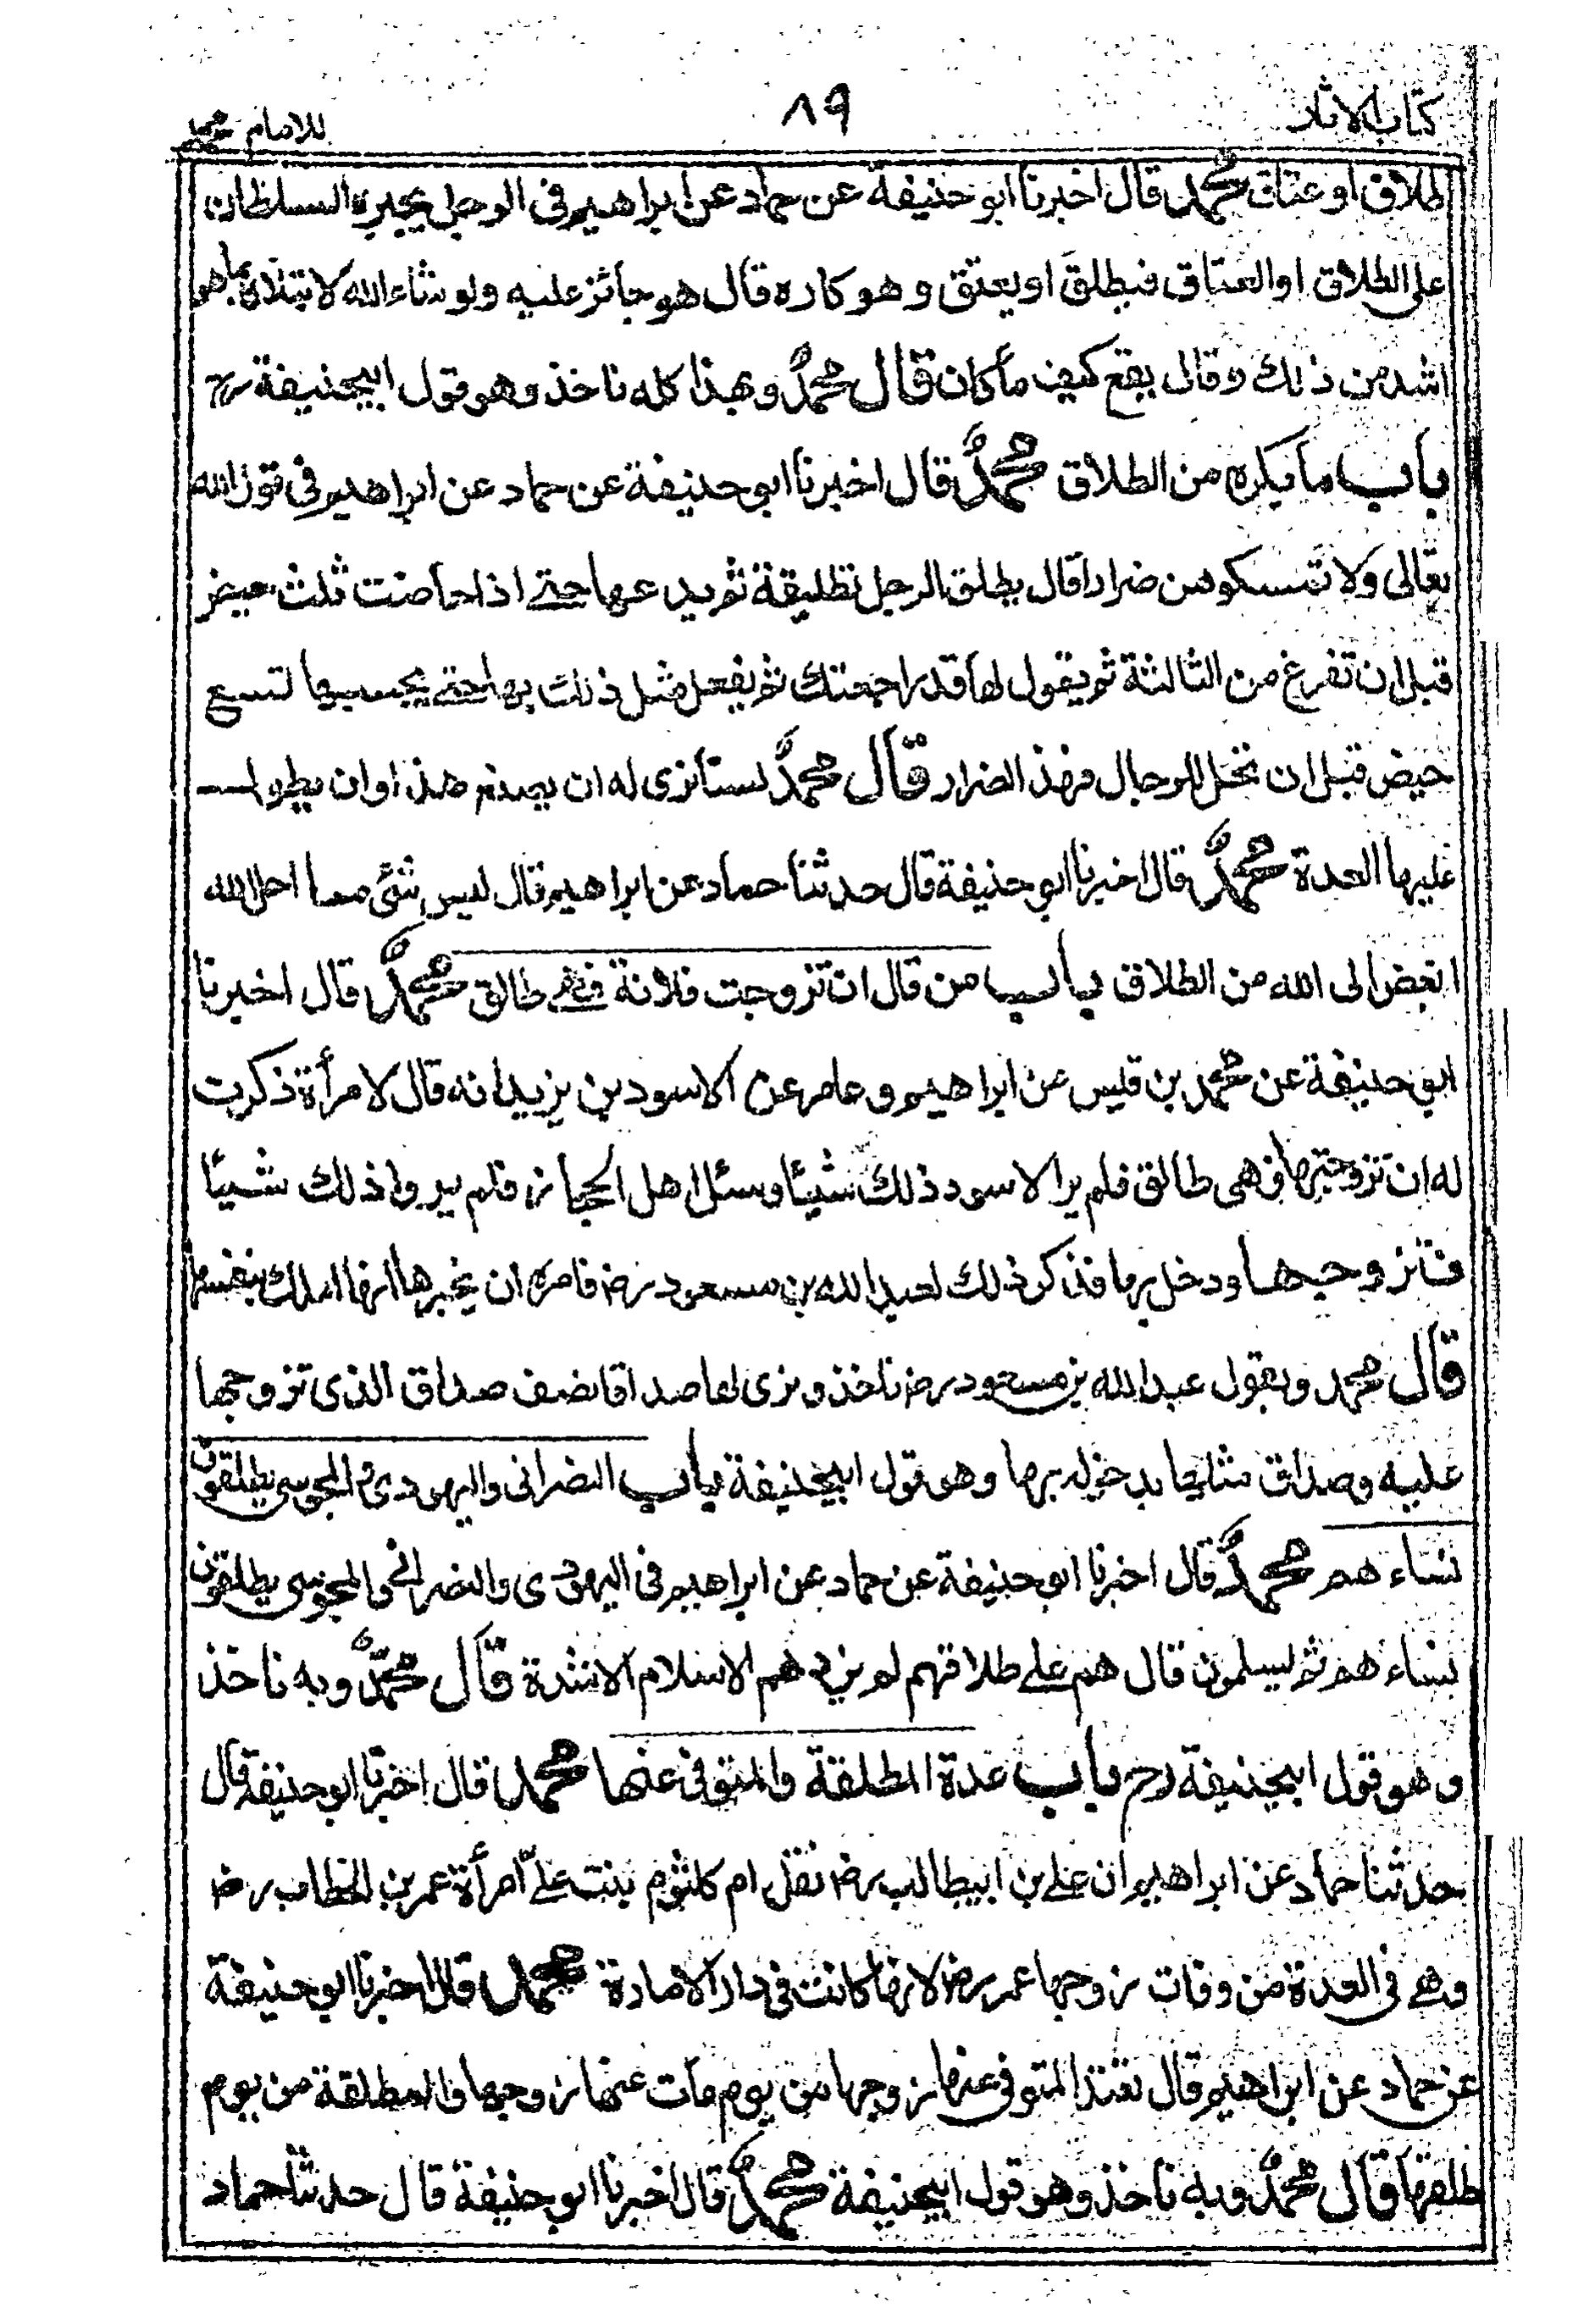 كتاب الاثار ٨٩ للامام محمد
طلاق او عتاق محمد قال اخبرنا ابو حنيفة عن حماد عن ابراهيم في الرجل يجبره السلطان
على الطلاق او العتاق فيطلق او يعتق وهو كاره قال هو جائز عليه ولو شاء الله لابتلاه بما هو
اشد من ذلك وقال يقع كيف ما كان قال محمد وبهذا كله ناخذ وهو قول ابيحنيفة رح
باب ما يكره من الطلاق محمد قال اخبرنا ابو حنيفة عن حماد عن ابراهيم في قول الله
تعالى ولا تمسكوهن ضرارا قال يطلق الرجل تطليقة ثم يدعها حتى اذا حاضت ثلث حيض
قبل ان تفرغ من الثالثة ثم يقول لها قد راجعتك ثم يفعل مثل ذلك بها حتى يحبسها لتسع
حيض قبل ان تحل للرجال فهذا الضرار قال محمد لسنا نرى له ان يصنع هذا وان يطول
عليها العدة محمد قال اخبرنا ابو حنيفة قال حدثنا حماد عن ابراهيم قال ليس شئ مما احل الله
ابغض الى الله من الطلاق باب من قال ان تزوجت فلانة فهي طالق محمد قال اخبرنا
ابو حنيفة عن محمد بن قيس عن ابراهيم وعامر عن الاسود بن يزيد انه قال لامرأة ذكرت
له ان تزوجتها فهي طالق فلم ير الاسود ذلك شيئا وسئل اهل الحجاز فلم يروا ذلك شيئا
فتزوجها ودخل بها فذكر ذلك لعبد الله بن مسعود رض فامره ان يخبرها انها املك بنفسها
قال محمد وبقول عبد الله بن مسعود رض ناخذ ونرى لها صداقا نصف صداق الذى تزوجها
عليه وصداق مثلها بدخوله بها وهو قول ابيحنيفة باب النصرانى واليهودى والمجوسى يطلقون
نساءهم محمد قال اخبرنا ابو حنيفة عن حماد عن ابراهيم فى اليهودى والنصرانى والمجوسى يطلقون
نساءهم ثم يسلمون قال هم على طلاقهم لم يزدهم الاسلام الا شدة قال محمد وبه ناخذ
وهو قول ابيحنيفة رح باب عدة المطلقة والمتوفى عنها محمد قال اخبرنا ابو حنيفة قال
حدثنا حماد عن ابراهيم ان على بن ابيطالب رض نقل ام كلثوم بنت على امرأة عمر بن الخطاب رض
وهى فى العدة من وفات زوجها عمر رض لانها كانت فى دار الامارة محمد قال اخبرنا ابو حنيفة
عن حماد عن ابراهيم قال تعتد المتوفى عنها زوجها من يوم مات عنها زوجها والمطلقة من يوم
طلقها قال محمد وبه ناخذ وهو قول ابيحنيفة محمد قال اخبرنا ابو حنيفة قال حدثنا حماد